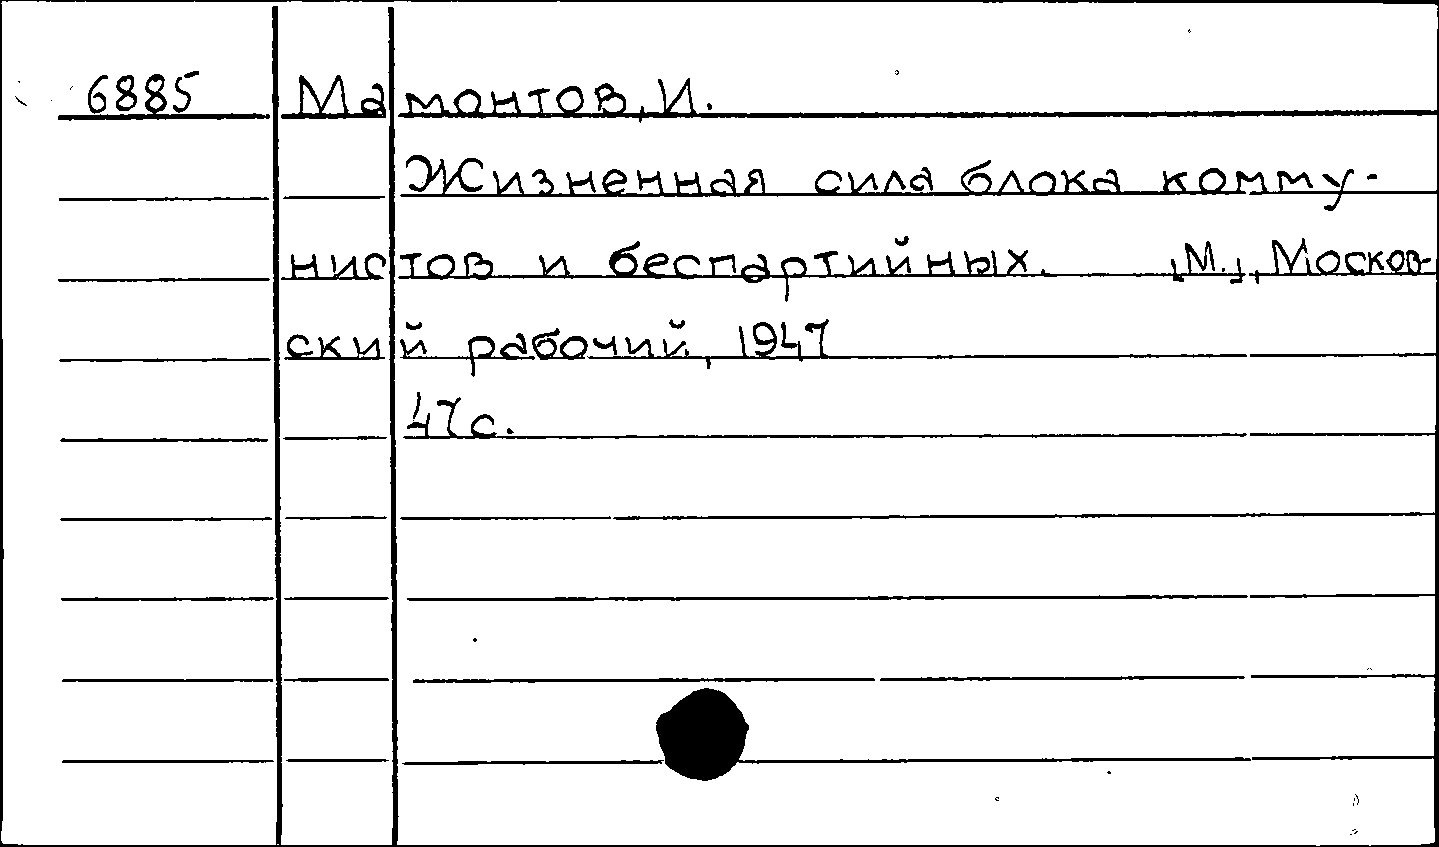 6885 Мамонтов, И.
Жизненная сила блока комму-
нистов и беспартийных. [М.], Москов-
ский рабочий, 1947
47 с.